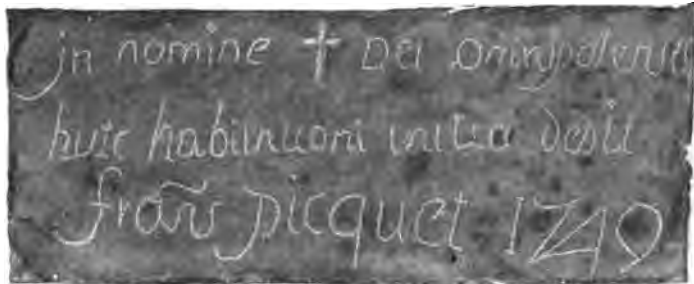 in nomine † Dei omnipotentis
huic habitationi initia dedit
frañ picquet 1749